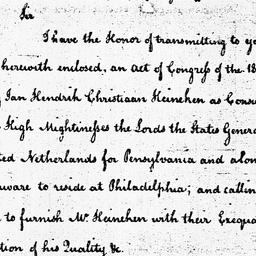 Sir
I have the Honor of transmitting to yo
herewith enclosed, an Act of Congreſs of the 18
Jan Hendrik Christiaan Heineken as Consu
High Mightineſses the Lords the States Genera
ted Netherlands for Pensylvania and alon
ware to reside at Philadelphia; and callin
to furnish Mr. Heineken with their Exequa
tion of his Quality &c.